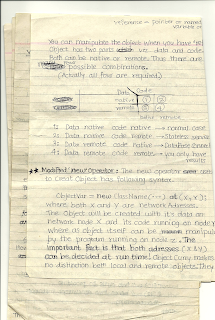 reference = pointer or named
variable or
You can manipulate the object when you have 're
Object has two parts viz data and code.
Both can be native or remote. Thus there are
possible combinations.
(Actually all four are required)
Data Code
native 1 2
remote 3 4
native remote
1: Data native code native → normal case
2: Data native code remote → Stateless server
3: Data remote code native → Database Cases
4: Data remote code remote → you only have
remote
** Modified 'new' Operator: The new operator used
to creat Object has following syntax.
ObjectVar = new ClassName(---) at (X, Y);
where both X and Y are Network Adresses.
The Object will be created with its data on
network node X and its code running on node Y
where as object itself can be manipulat
by the program running on node Z. The
important fact is that both adresses (X & Y)
can be decided at run time! Object Curry makes
no distinction betn local and remote objects. They